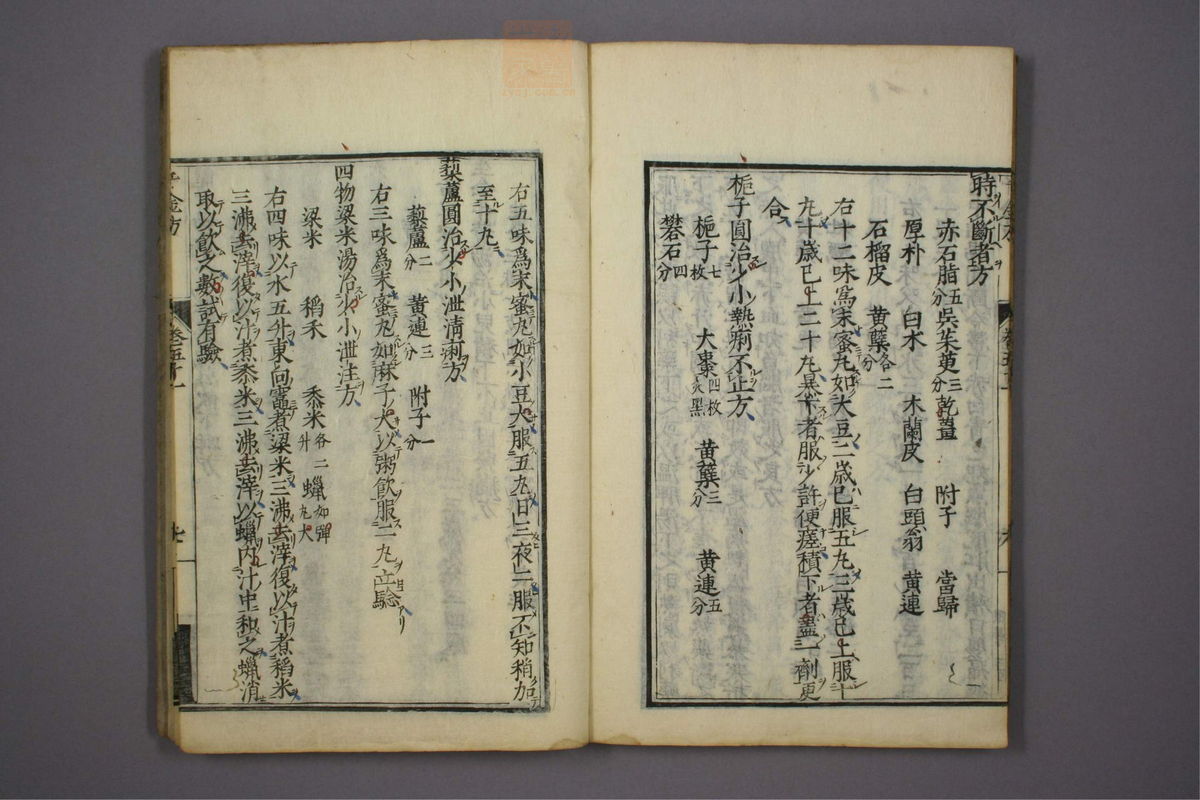 時不斷者方
赤石脂五分 吳茱萸三分 乾薑 附子 當歸
厚朴 白木 木蘭皮 白頭翁 黄連
石榴皮 黄蘗各二分
右十二味爲末蜜丸如大豆二歳已服五丸三歳已上服十
丸十歳已上二十丸暴下者服少許便瘥積下者盡一劑更
合
梔子圓治少小熱痢不止方
梔子七枚 大棗四枚炙黑 黄蘗三分 黄連五分
礬石四分
右五味爲末蜜丸如小豆大服五丸日三夜二服不知稍加
至十丸
藜蘆圓治少小泄淸痢方
藜蘆二分 黄連三分 附子一分
右三味爲末蜜丸如麻子大以粥飮服二丸立驗
四物梁米湯治少小泄注方
梁米 稻禾 黍米各二升 蠟如彈丸大
右四味以水五升東向竈煮梁米三沸去滓復以汁煮稻米
三沸去滓復以汁煮黍米三沸去滓以蠟内汁中和之蠟消
取以飮之數試有驗
千金方 卷五